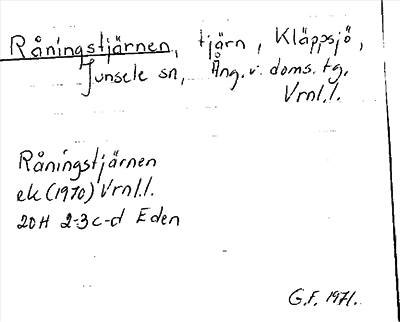 Råningstjärnen, tjärn, Kläppsjö,
Junsele sn, Ång. v. doms. tg.
Vrnl.l.
Råningstjärnen
ek (1970) Vrnl.l.
20H 2-3 c-d Eden
G.F. 1971.